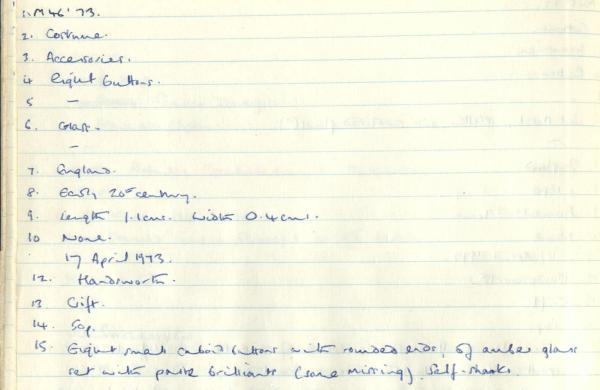 1. M46'73.
2. Costume.
3. Accessories.
4 Eight buttons.
5 —
6. Glass.
—
7. England.
8. Early 20th century.
9. Length 1.1cms. Width 0.4cms.
10 None.
17 April 1973.
12. Handsworth.
13 Gift.
14. 50p.
15. Eight small cuboid buttons with rounded ends, of amber glass
set with paste brilliants (some missing), self-shanks.